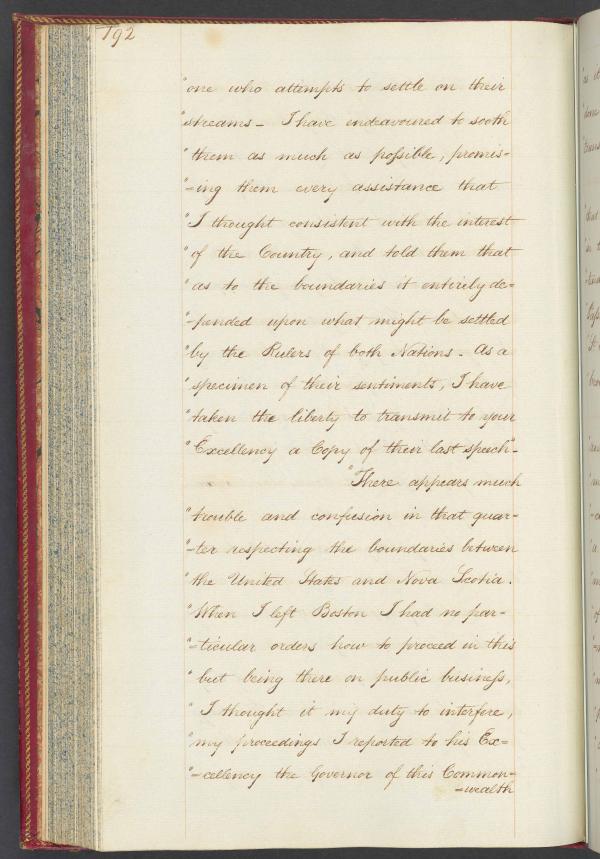 192
"one who attempts to settle on their
"streams - I have endeavoured to sooth
"them as much as possible, promis=
"=ing them every assistance that
"I thought consistent with the interest
"of the Country, and told them that
"as to the boundaries it entirely de=
"=pended upon what might be settled
"by the Rulers of both Nations - As a
"specimen of their sentiments, I have
"taken the liberty to transmit to your
"Excellency a Copy of their last speech"-
"There appears much
"trouble and confusion in that quar=
"=ter respecting the boundaries between
"the United States and Nova Scotia.
"When I left Boston I had no par=
"=ticular orders how to proceed in this
"but being there on public business,
"I thought it my duty to interfere,
"my proceedings I reported to his Ex=
"=cellency the Governor of this Common=
=wealth